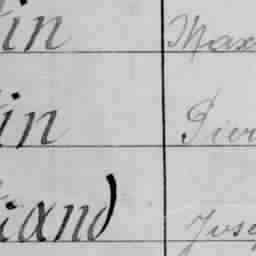 tin Max
tin Pier
iand Josep